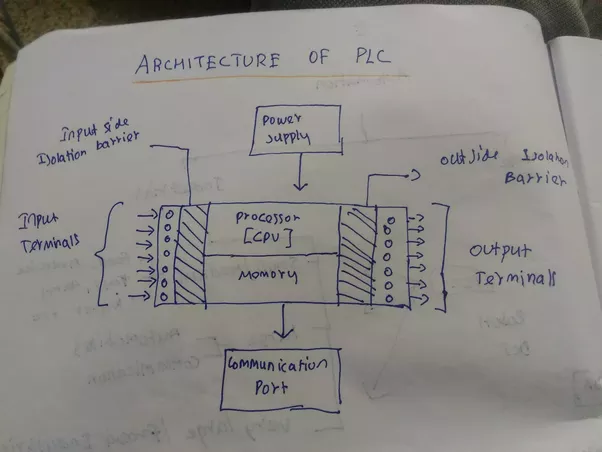 ARCHITECTURE OF PLC
Power
Supply
Input side
Isolation barrier
Outside Isolation
Barrier
Input
Terminals
Processor
[CPU]
Memory
Output
Terminals
Communication
Port